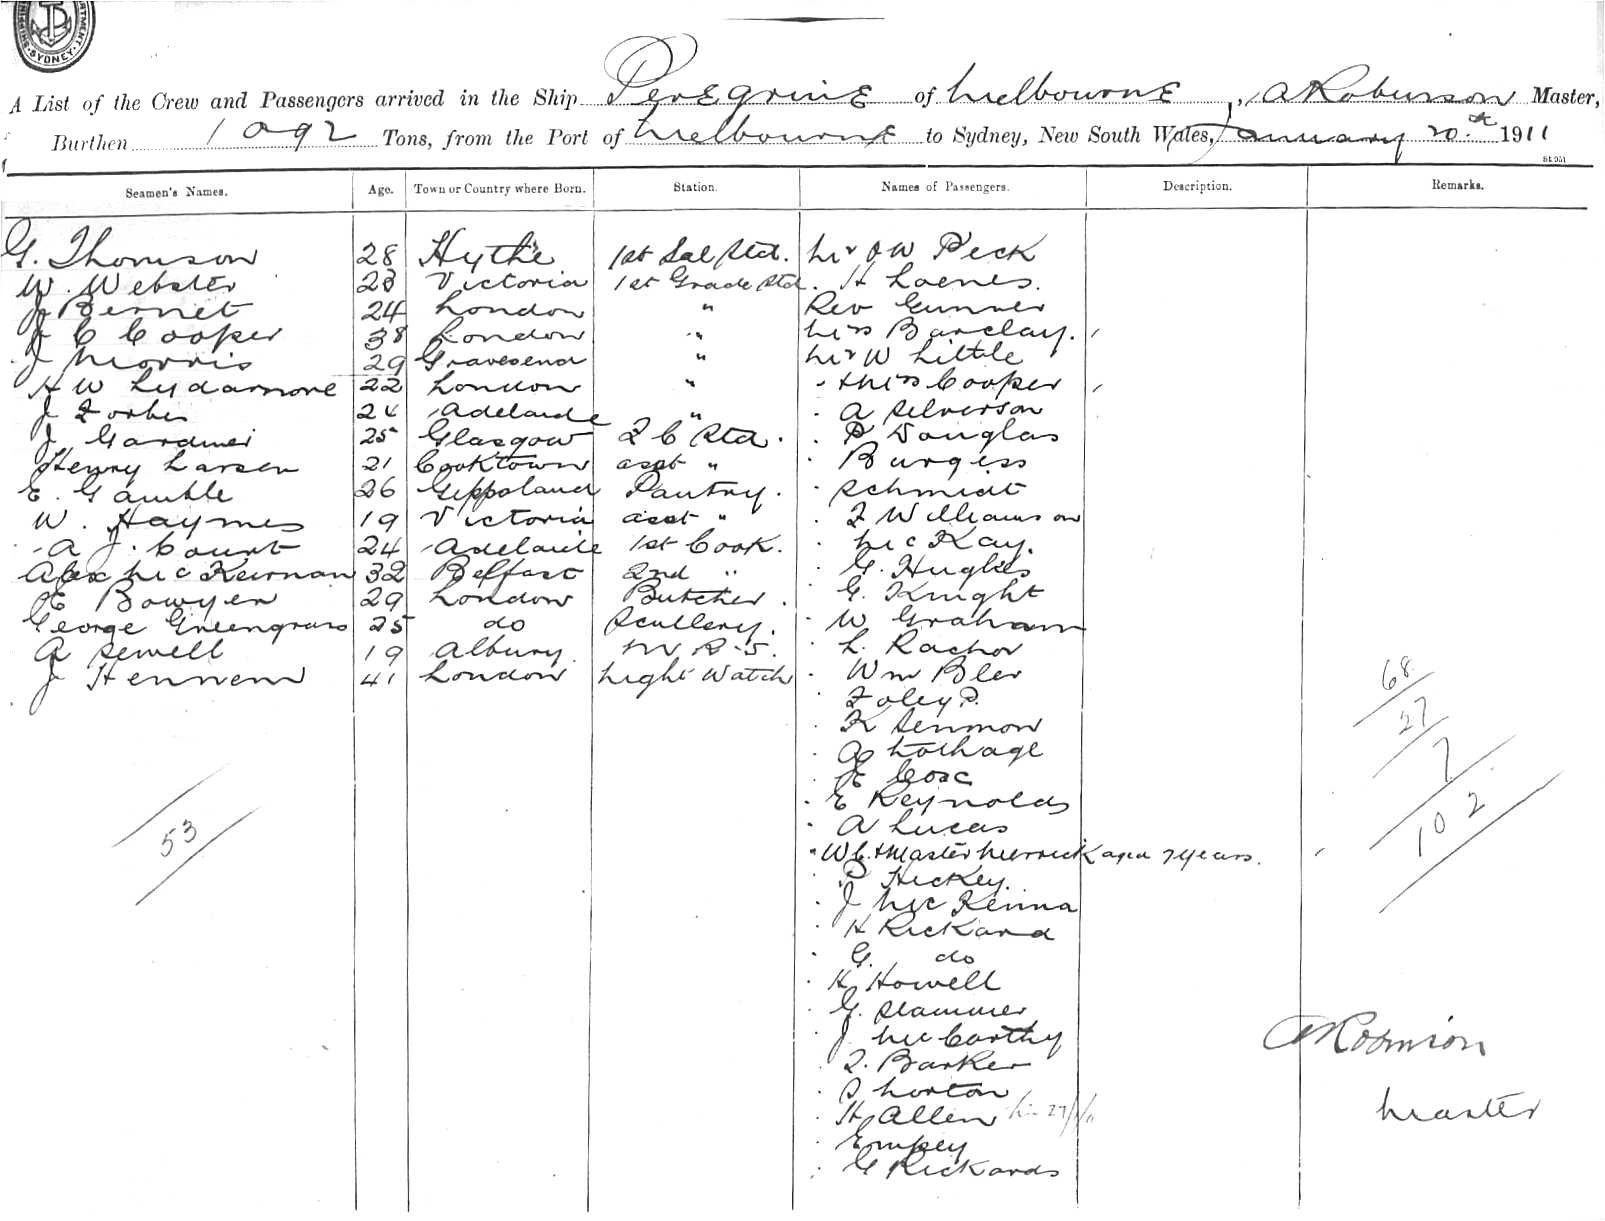 SYDNEY
A List of the Crew and Passengers arrived in the Ship Peregrine of Melbourne, A Robinson Master,
Burthen 1092 Tons, from the Port of Melbourne to Sydney, New South Wales, January 20th 1911
Seamen's Names. Age. Town or Country where Born. Station. Names of Passengers. Description. Remarks.
G. Thomson 28 Hythe 1st Sal Std. Mr O W Peck
W. Webster 23 Victoria 1st Grade Std. " H Loenes.
J Bernet 24 London " Rev Gunner
J C Cooper 38 London " Miss Barclay.
J Morris 29 Gravesend " Mr W Little
H W Lydamore 22 London " " & Miss Cooper
J Forbes 24 Adelaide " " A Silverson
J Gardner 25 Glasgow F C Std. " P Douglas
Henry Larsen 21 Cooktown asst " " Burgess
E. Gamble 26 Gippsland Pantry. " Schmidt
W. Haymes 19 Victoria asst " " F Williamson
A J. Count 24 Adelaide 1st Cook. " McKay.
Alex McKeirnan 32 Belfast 2nd " " G. Hughes
E Bowyer 29 London Butcher. " G. Knight
George Greengrass 25 do Scullery. " W Graham
A Sewell 19 Albury. M R S. " L. Rachor
J Hennem 41 London Night Watch " Wm Bler
" Foley P.
" K Senmon
" A Lothage
" E
" E Reynolds
" A Lucas
" W C. & Master Merrick aged 7 years.
" P Hickey.
" J McKenna
" H Rickard
" G. do
" H. Howell
" G. Stammer
" J McCarthy
" F. Barker
" S Norton
" H Allen 27/1/11
" Empey
" G Rickards
53
68
27
7
102
A Robinson
Master